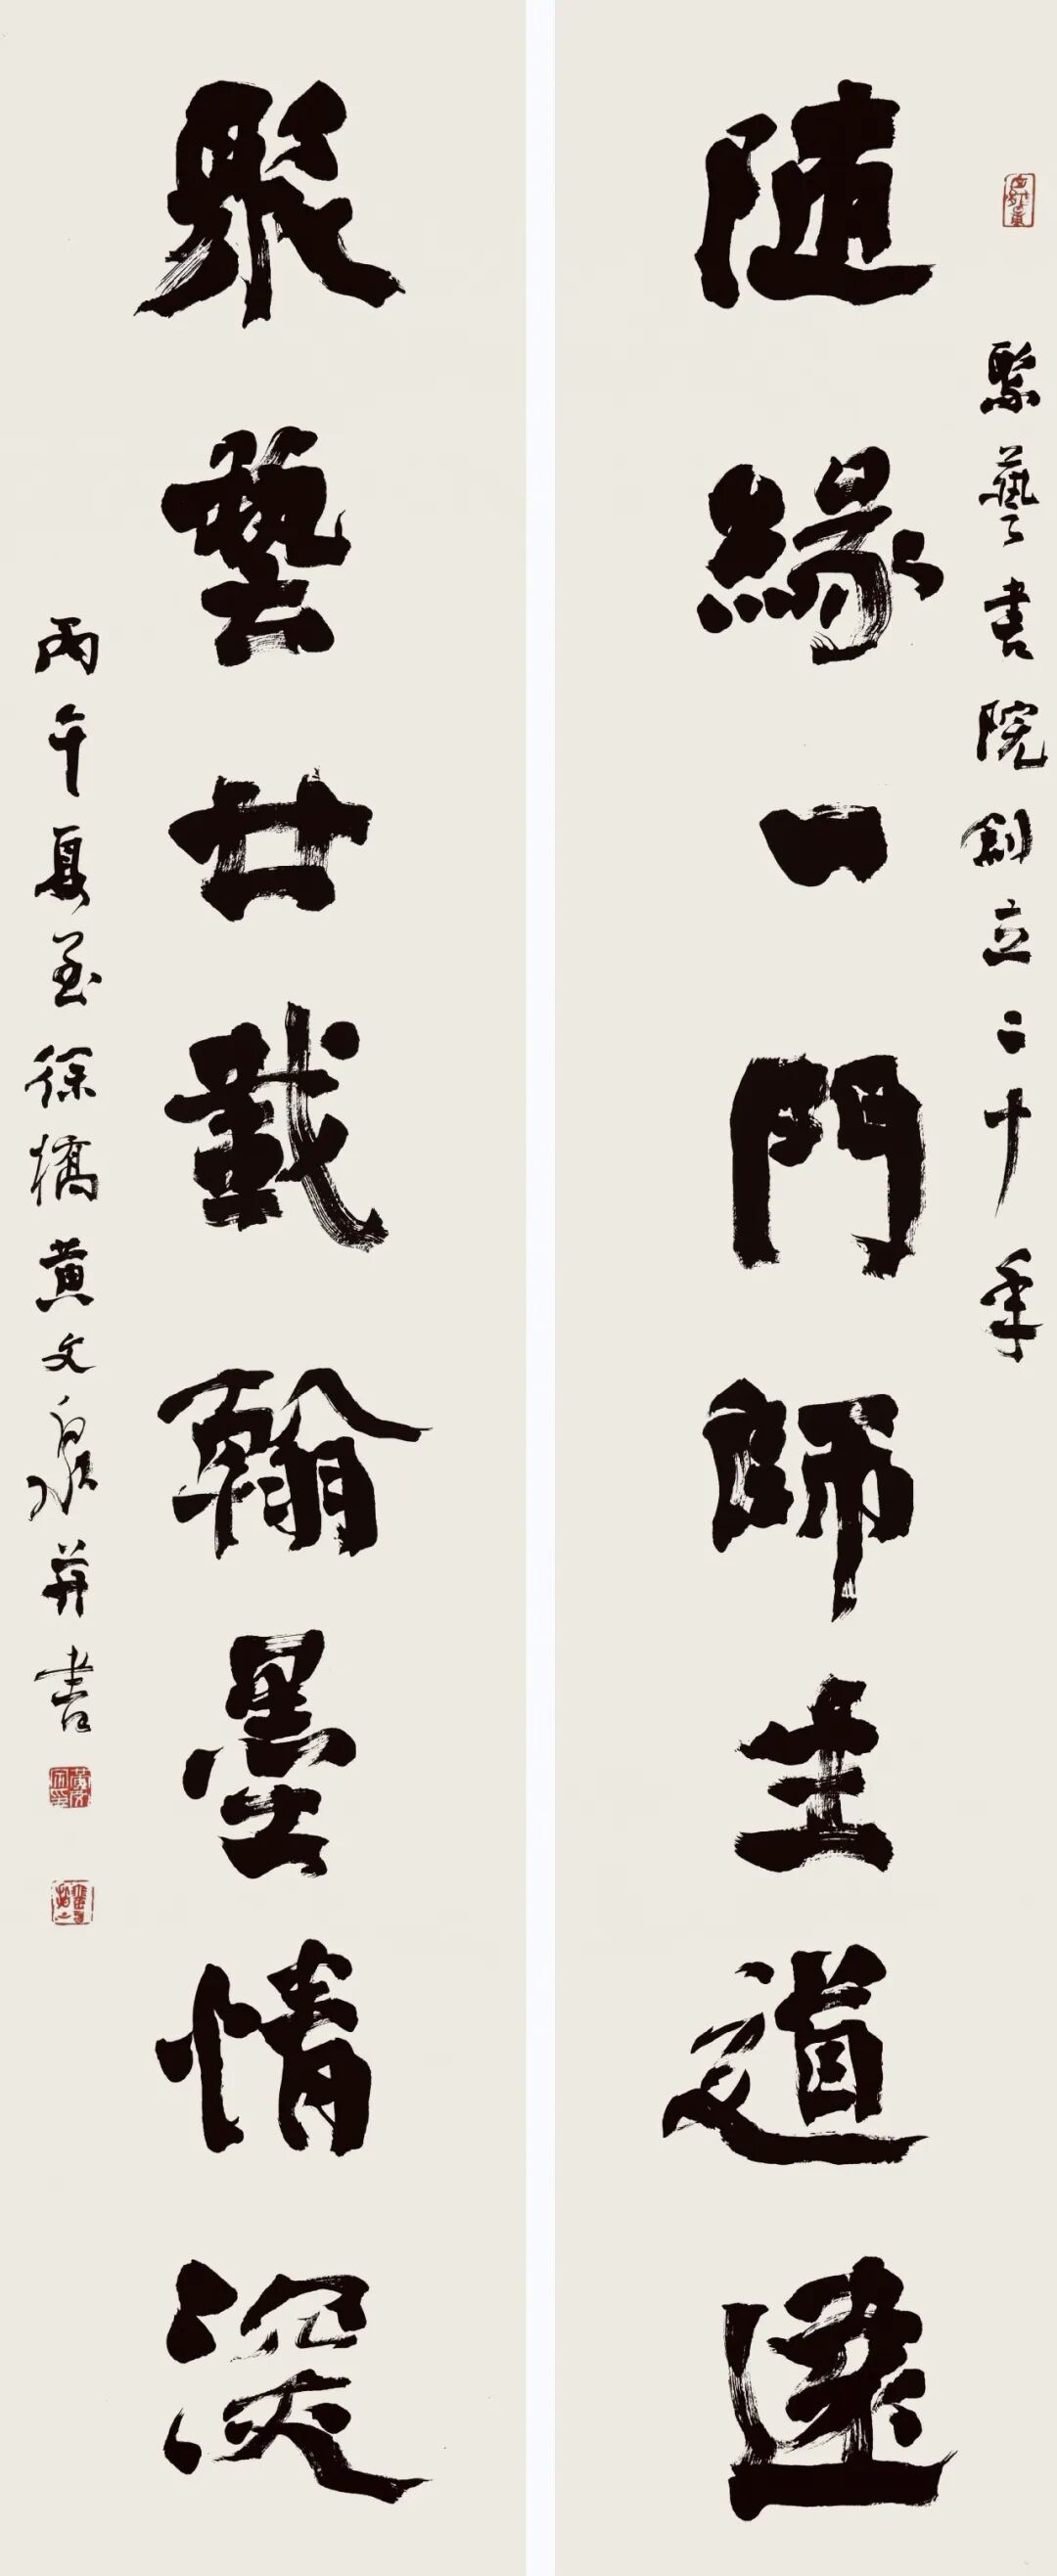 聚藝書院創立二十年
隨緣一門師生道遠
聚藝廿載翰墨情深
丙午夏至徐橋黄文泉并書